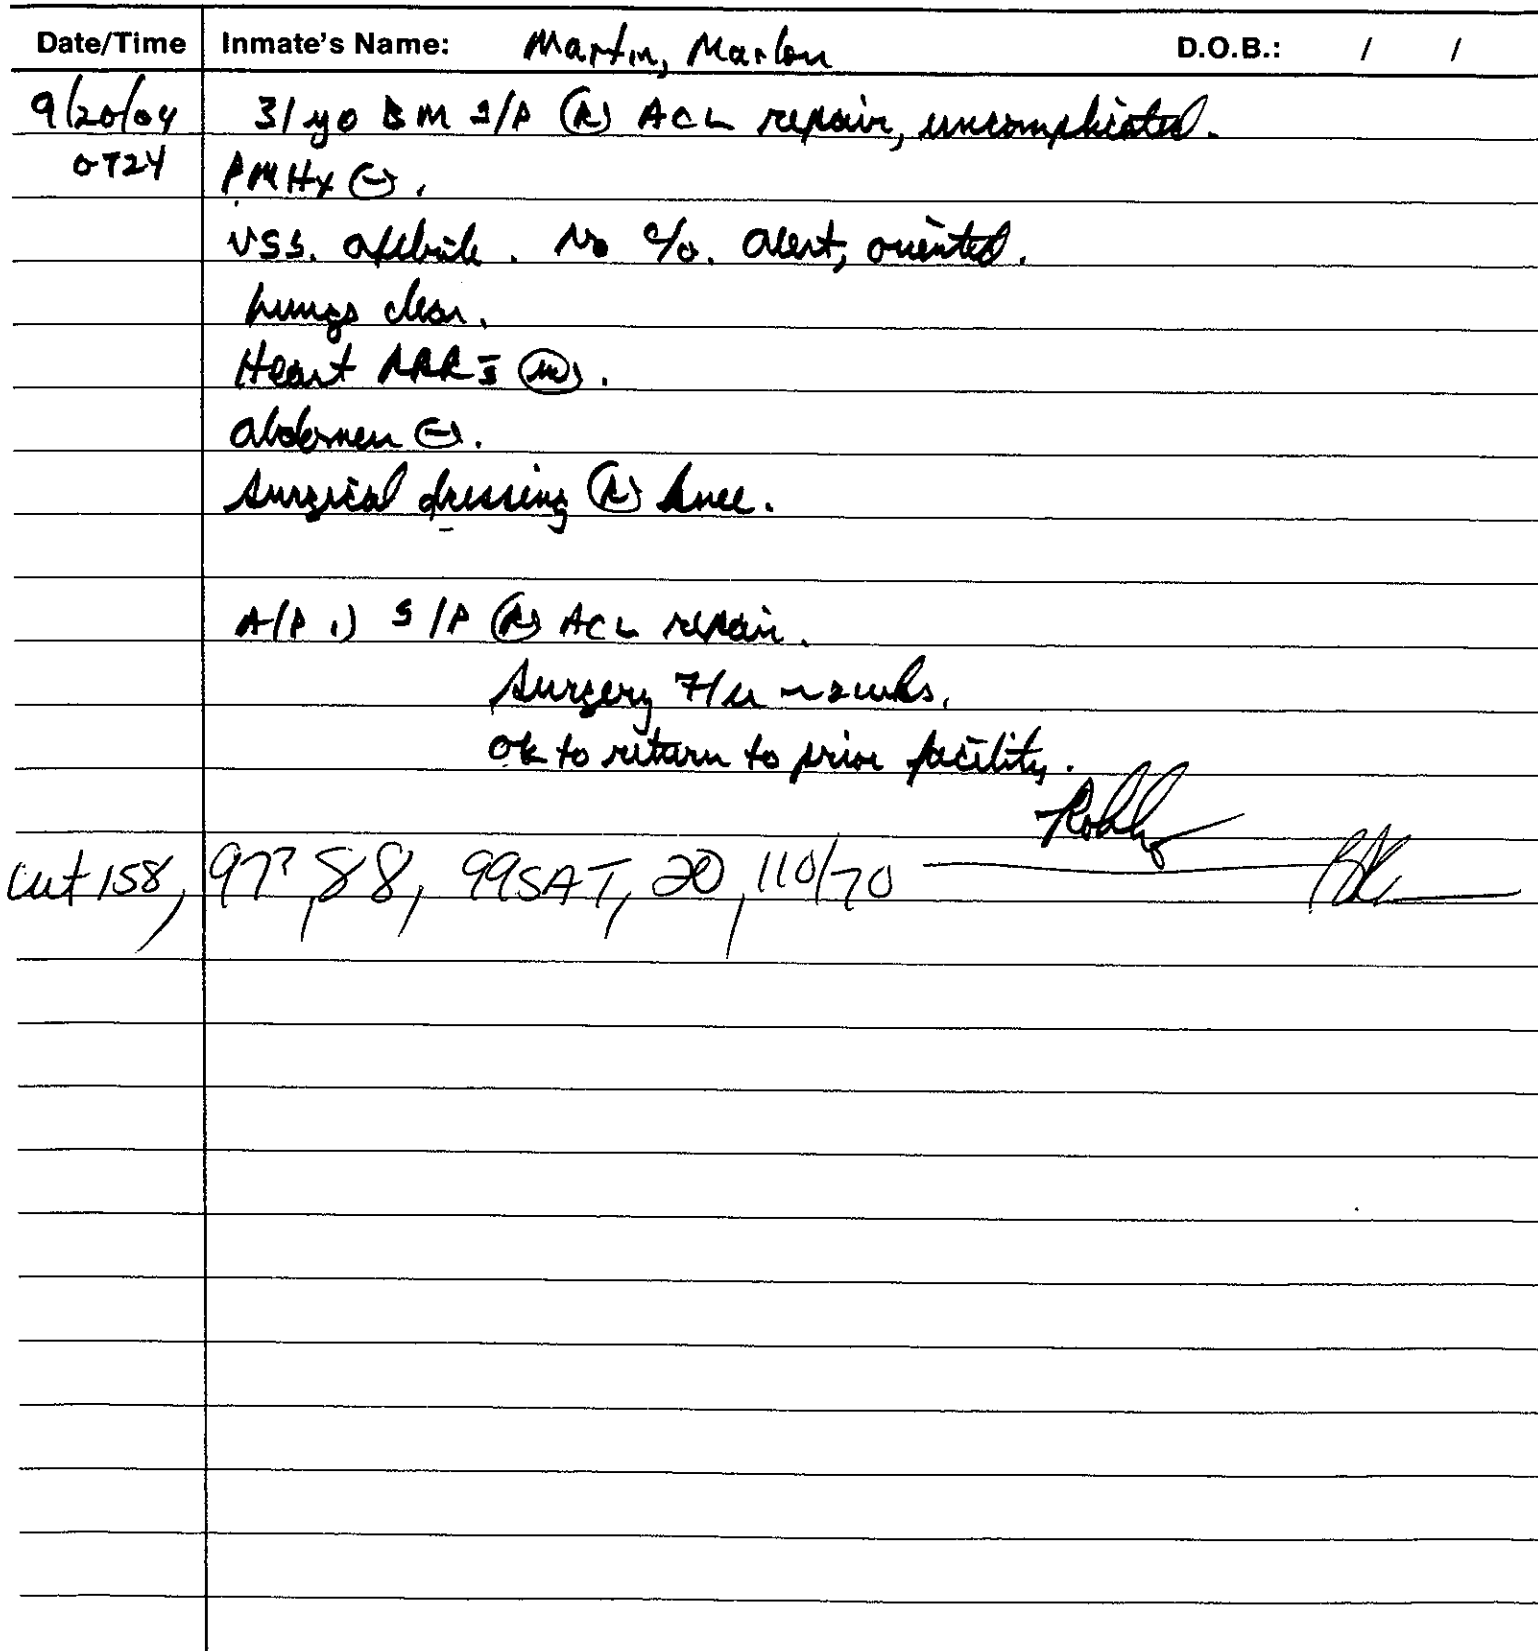 Date/Time Inmate's Name: Martin, Marlon D.O.B.: / /
9/20/04 31 yo BM S/P Ⓡ ACL repair, uncomplicated.
0724 PMHx ⊖.
VSS. afebrile. No c/o. Alert, oriented.
Lungs clear.
Heart RRR s̄ ⓜ.
Abdomen ⊖.
Surgical dressing Ⓡ knee.
A/P 1) S/P Ⓡ ACL repair.
Surgery F/u ~2wks.
OK to return to prior facility.
wt 158, 97, 88, 99SAT, 20, 110/70